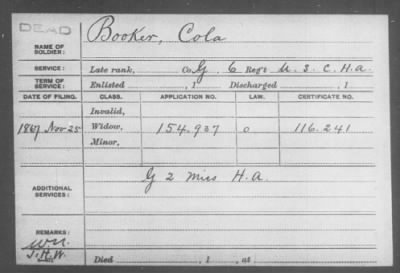 DEAD
NAME OF SOLDIER: Booker, Cola
SERVICE: Late rank, Co. G, 6 Reg't U. S. C. H. A.
TERM OF SERVICE: Enlisted , 1 Discharged , 1
DATE OF FILING. CLASS. APPLICATION NO. LAW. CERTIFICATE NO.
Invalid,
1867 Nov 25 Widow, 154.937 0 116.241
Minor,
ADDITIONAL SERVICES: G 2 Miss H. A.
REMARKS:
J.H.W.
Died , 1 , at